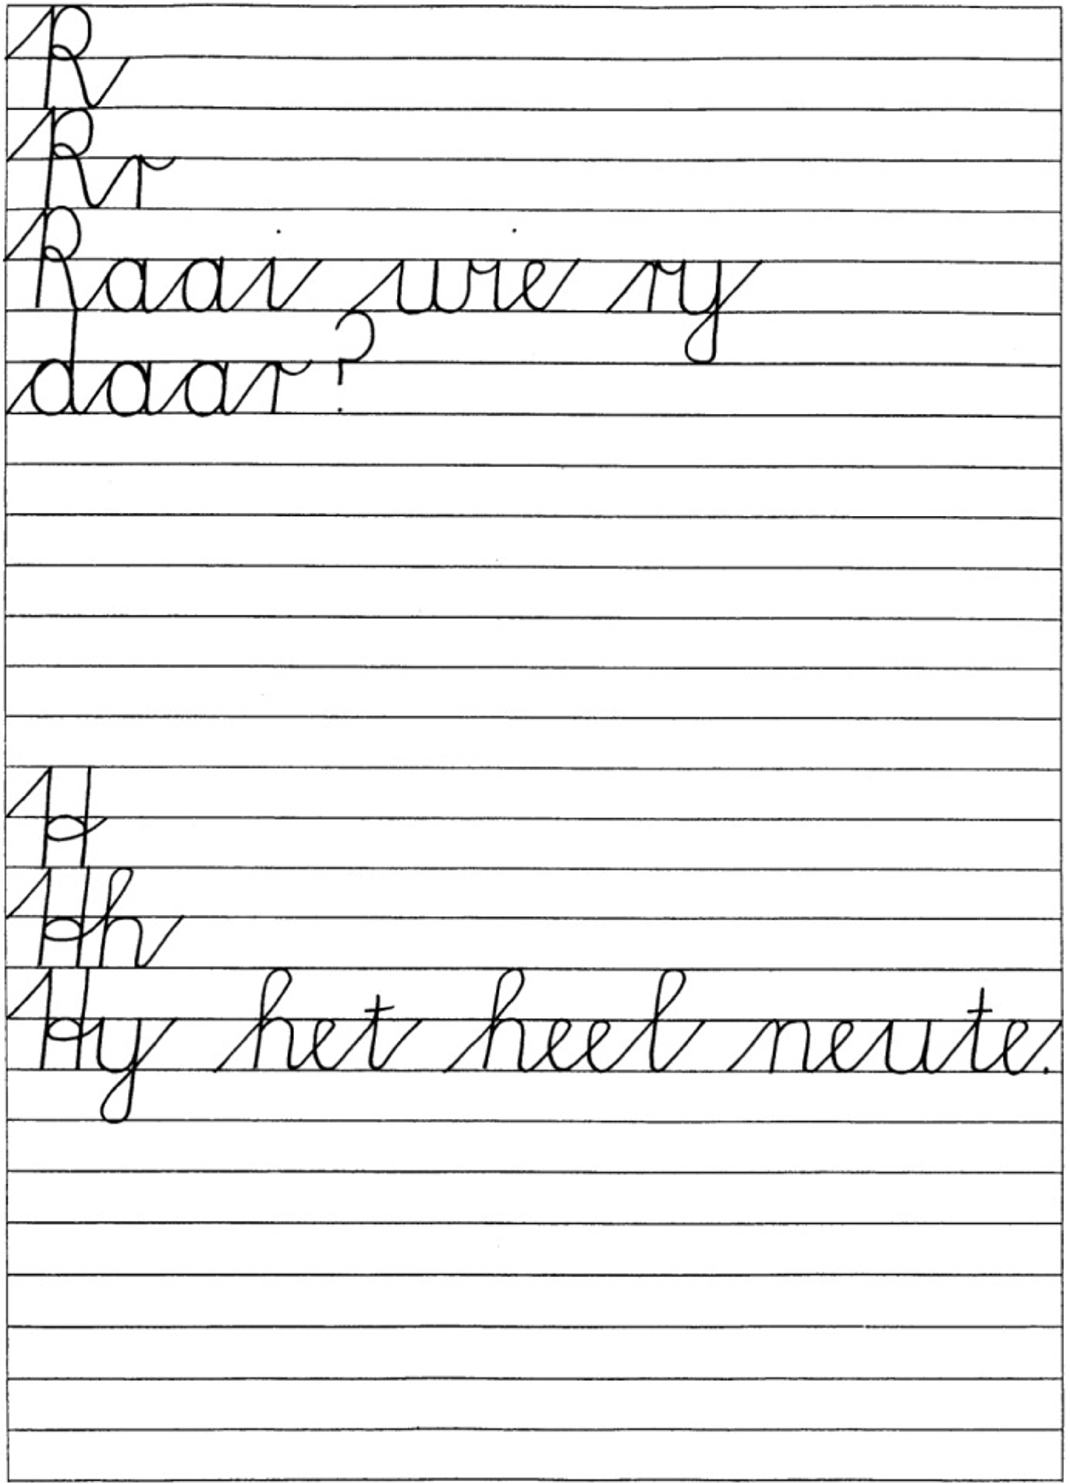 R
Rr
Raai wie ry
daar?
H
Hh
Hy het heel neute.